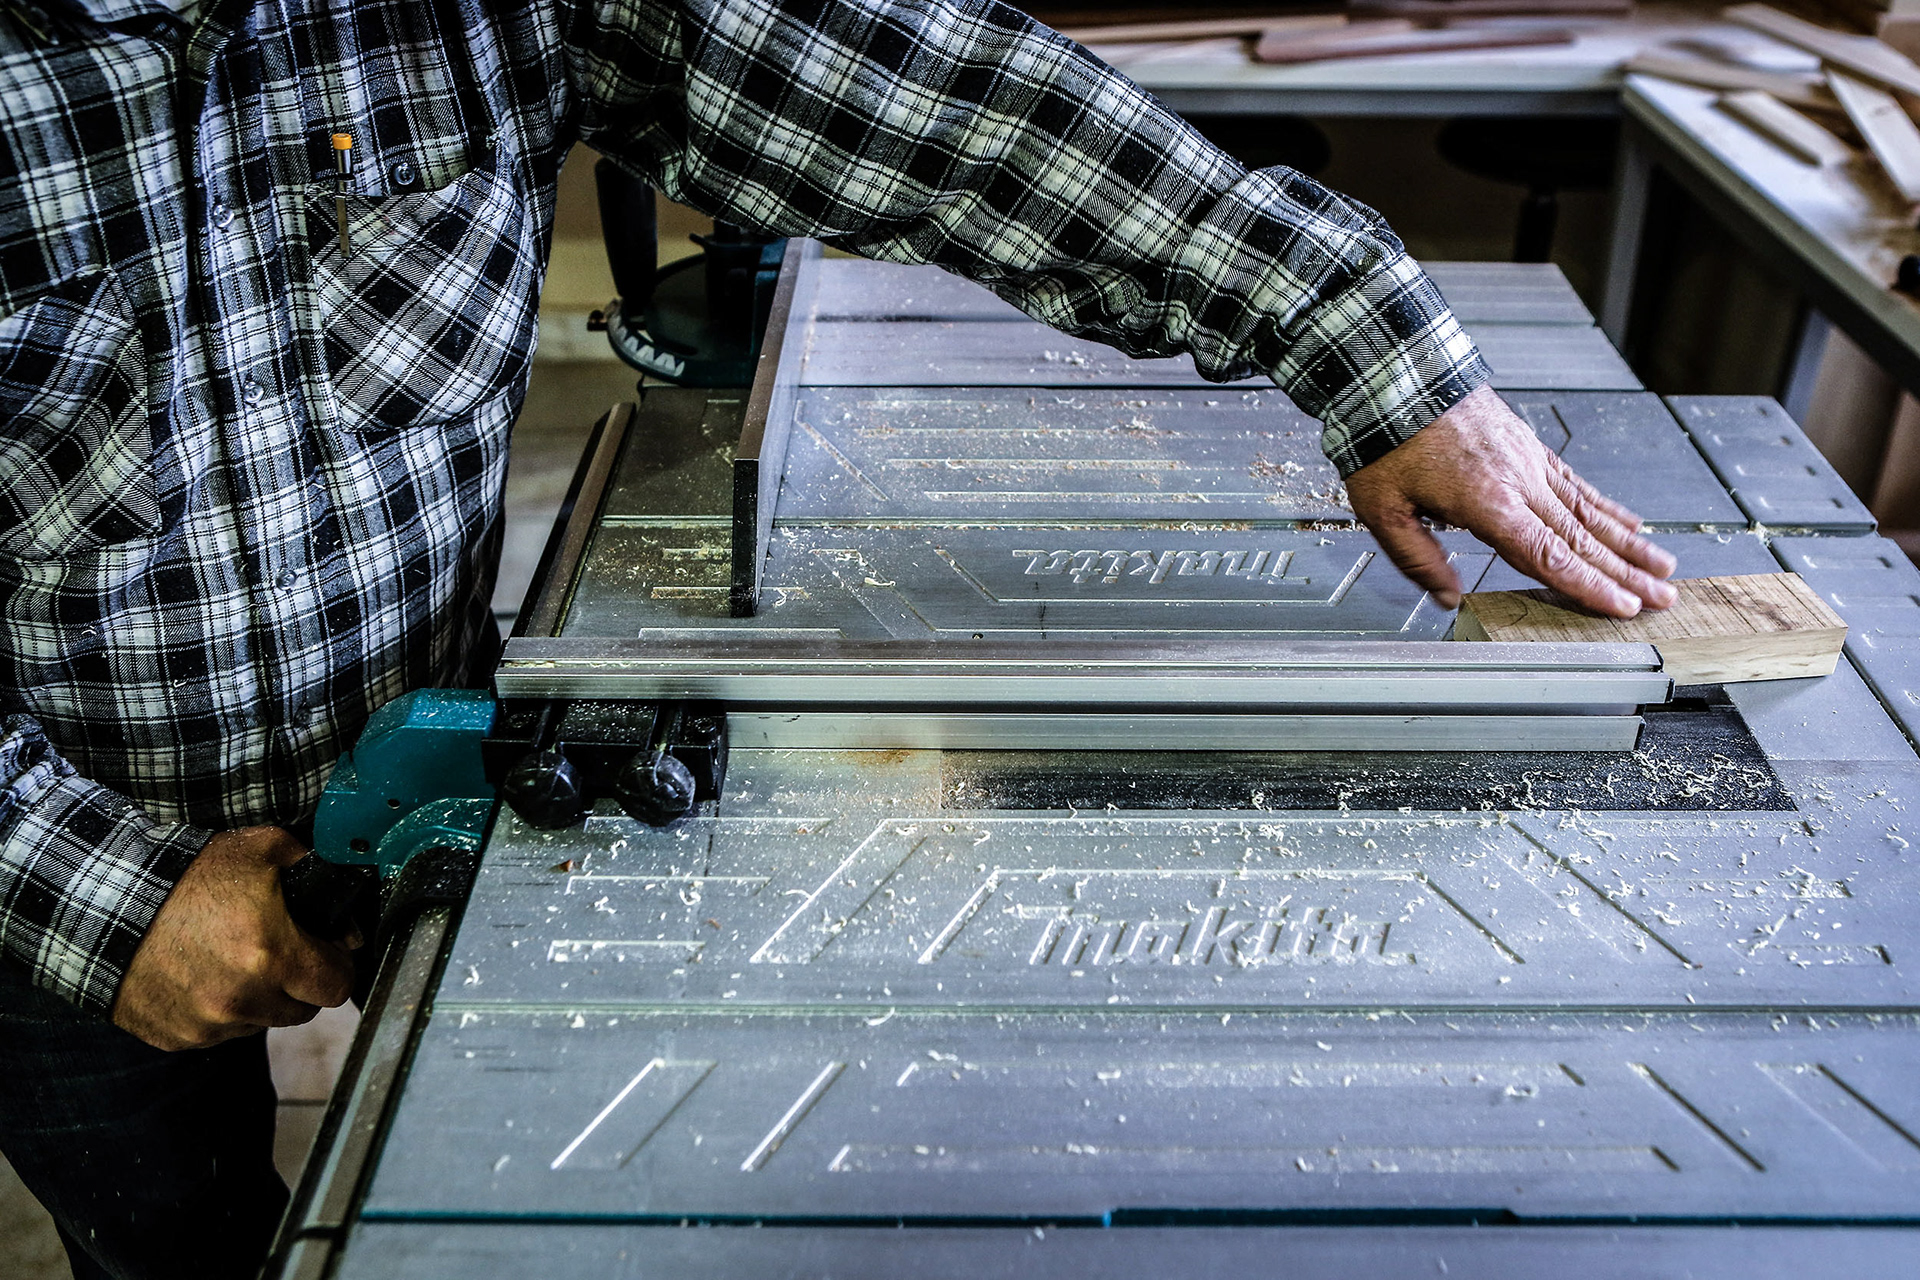 makita
makita